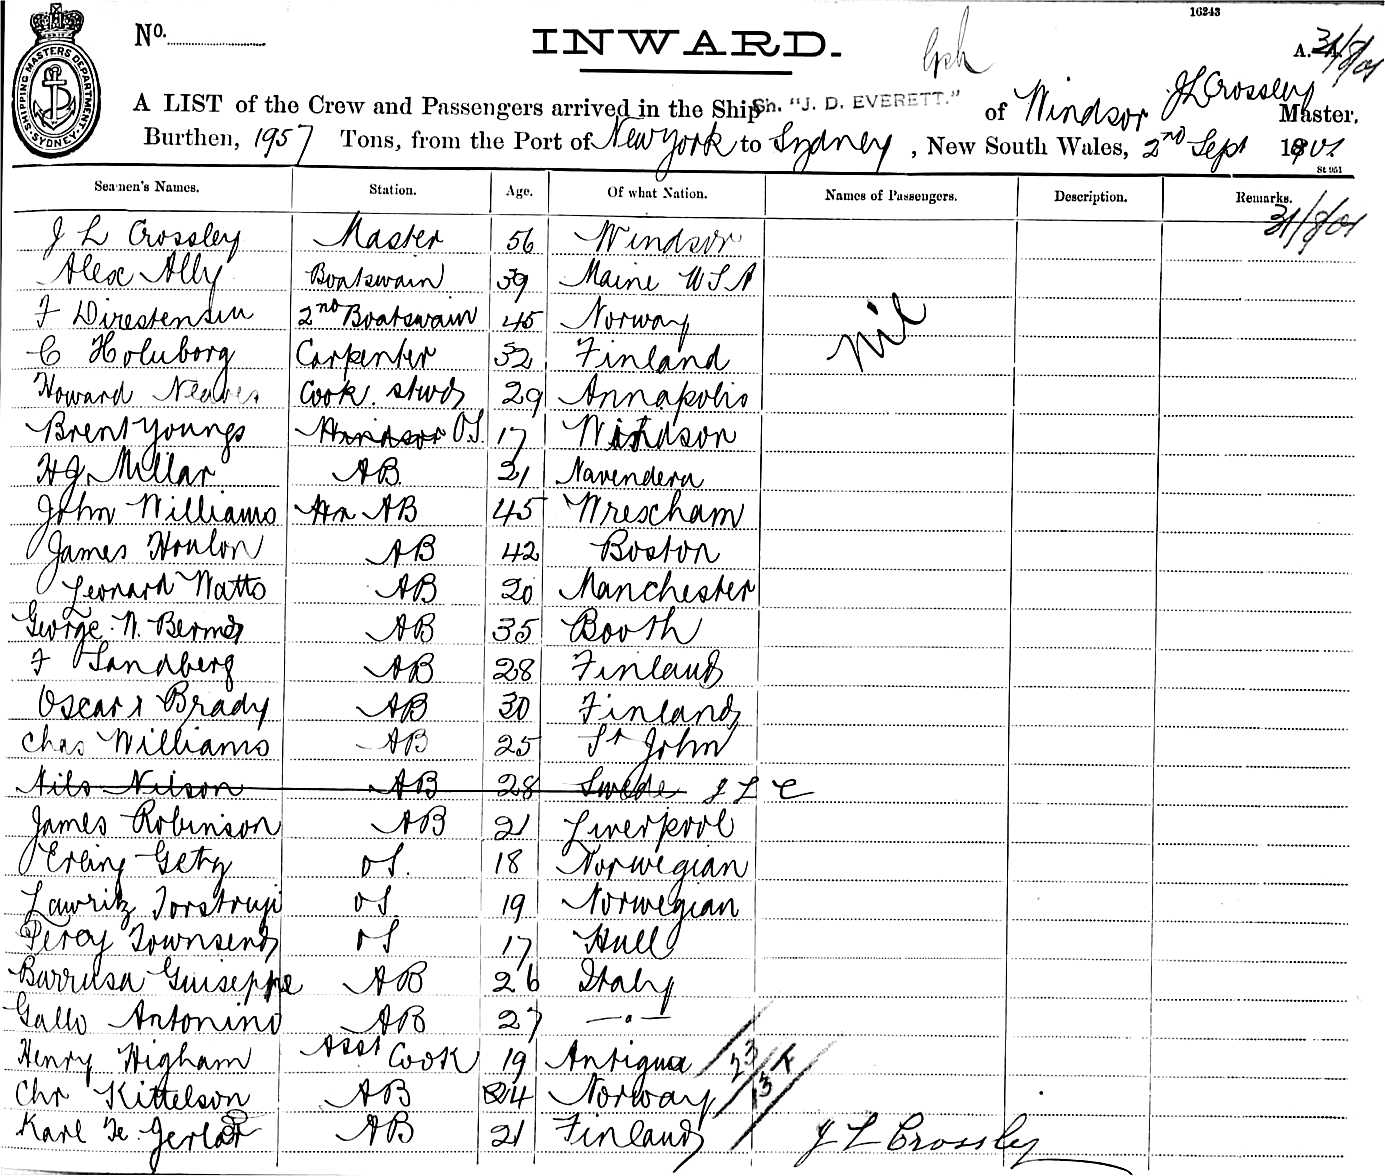 16243
SHIPPING MASTERS DEPARTMENT
SYDNEY
No.
INWARD.
A. 31/8/01
A LIST of the Crew and Passengers arrived in the Ship Sh. "J. D. EVERETT." of Windsor J L Crossley Master.
Burthen, 1957 Tons, from the Port of New York to Sydney, New South Wales, 2nd Sept 1901
St 951
Seamen's Names. Station. Age. Of what Nation. Names of Passengers. Description. Remarks.
31/8/01
J L Crossley Master 56 Windsor
Alex Ally Boatswain 39 Maine USA
F 2nd Boatswain 45 Norway
nil
C Holuborg Carpenter 32 Finland
Howard Neaves Cook. stwd 29 Annapolis
Brent Youngs Windsor OS. 17 Windson
H J Millar AB 21 Navendera
John Williams AB 45 Wrescham
James Houlon AB 42 Boston
Leonard Watts AB 20 Manchester
George N. AB 35 Booth
F Sandberg AB 28 Finland
Oscar Brady AB 30 Finland
Chas Williams AB 25 St John
Nils Nilson AB 28 Swede J L C
James Robinson AB 21 Liverpool
Erling Getz OS. 18 Norwegian
Lawritz Torstrup OS 19 Norwegian
Percy Townsend OS 17 Hull
Barrusa Guiseppe AB 26 Italy
Gallo Antonino AB 27 — " —
Henry Higham Asst Cook 19 Antigua 23
Chr Kittelson AB 24 Norway 13
Karl Fe. Gerlar AB 21 Finland J L Crossley